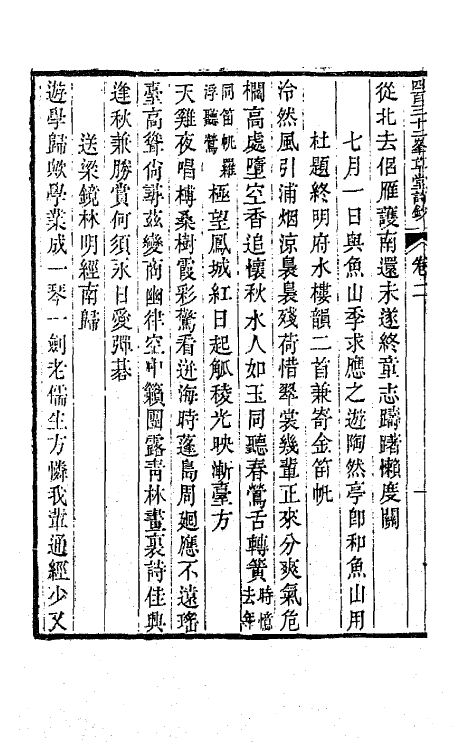 四百三十二峯草堂詩鈔 卷二 一
從北去侶雁護南還未遂終童志躊躇懶度關
七月一日與魚山季求應之遊陶然亭卽和魚山用
杜題終明府水樓韻二首兼寄金笛帆
泠然風引浦烟涼裊裊殘荷惜翠裳幾輩正來分爽氣危
欄高處墮空香追懷秋水人如玉同聽春鶯舌轉簧時憶去年
同笛帆羅浮聽鶯極望鳳城紅日起觚稜光映漸臺方
天雞夜唱榑桑樹霞彩驚看迸海時蓬島周廻應不遠瑤
臺高聳尙蓴茲變商幽律空中籟團露靑林畫裏詩佳興
逢秋兼勝賞何須永日愛彈棊
送梁鏡林明經南歸
遊學歸歟學業成一琴一劍老儒生方憐我輩通經少又